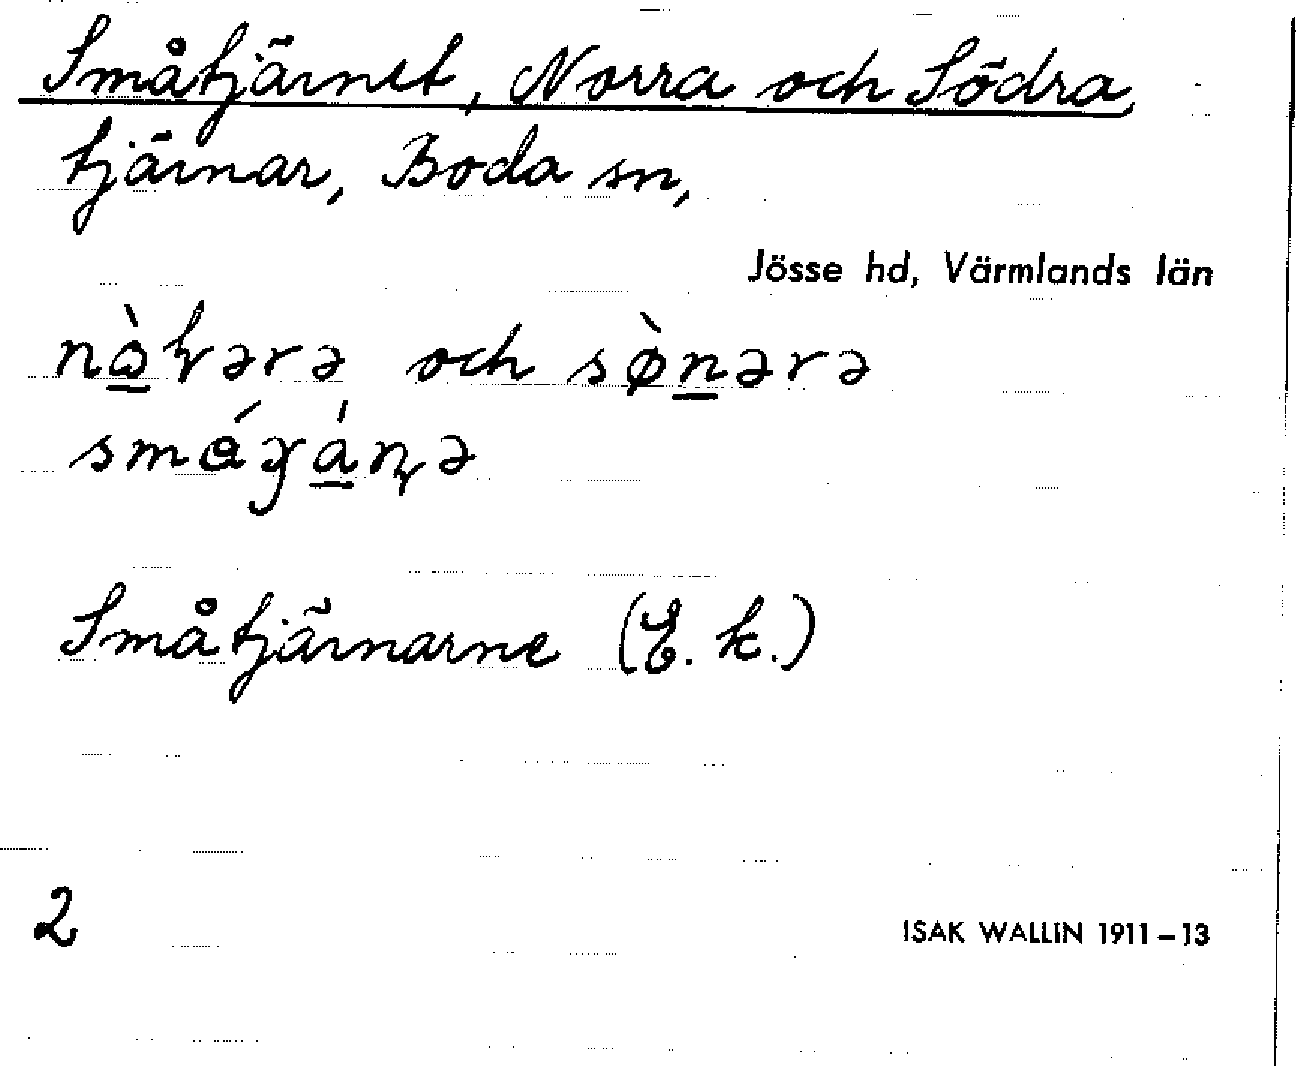 Småtjärnet, Norra och Södra
tjärnar, Boda sn,
Jösse hd, Värmlands län
och
Småtjärnarne (E. k.)
2
ISAK WALLIN 1911–13